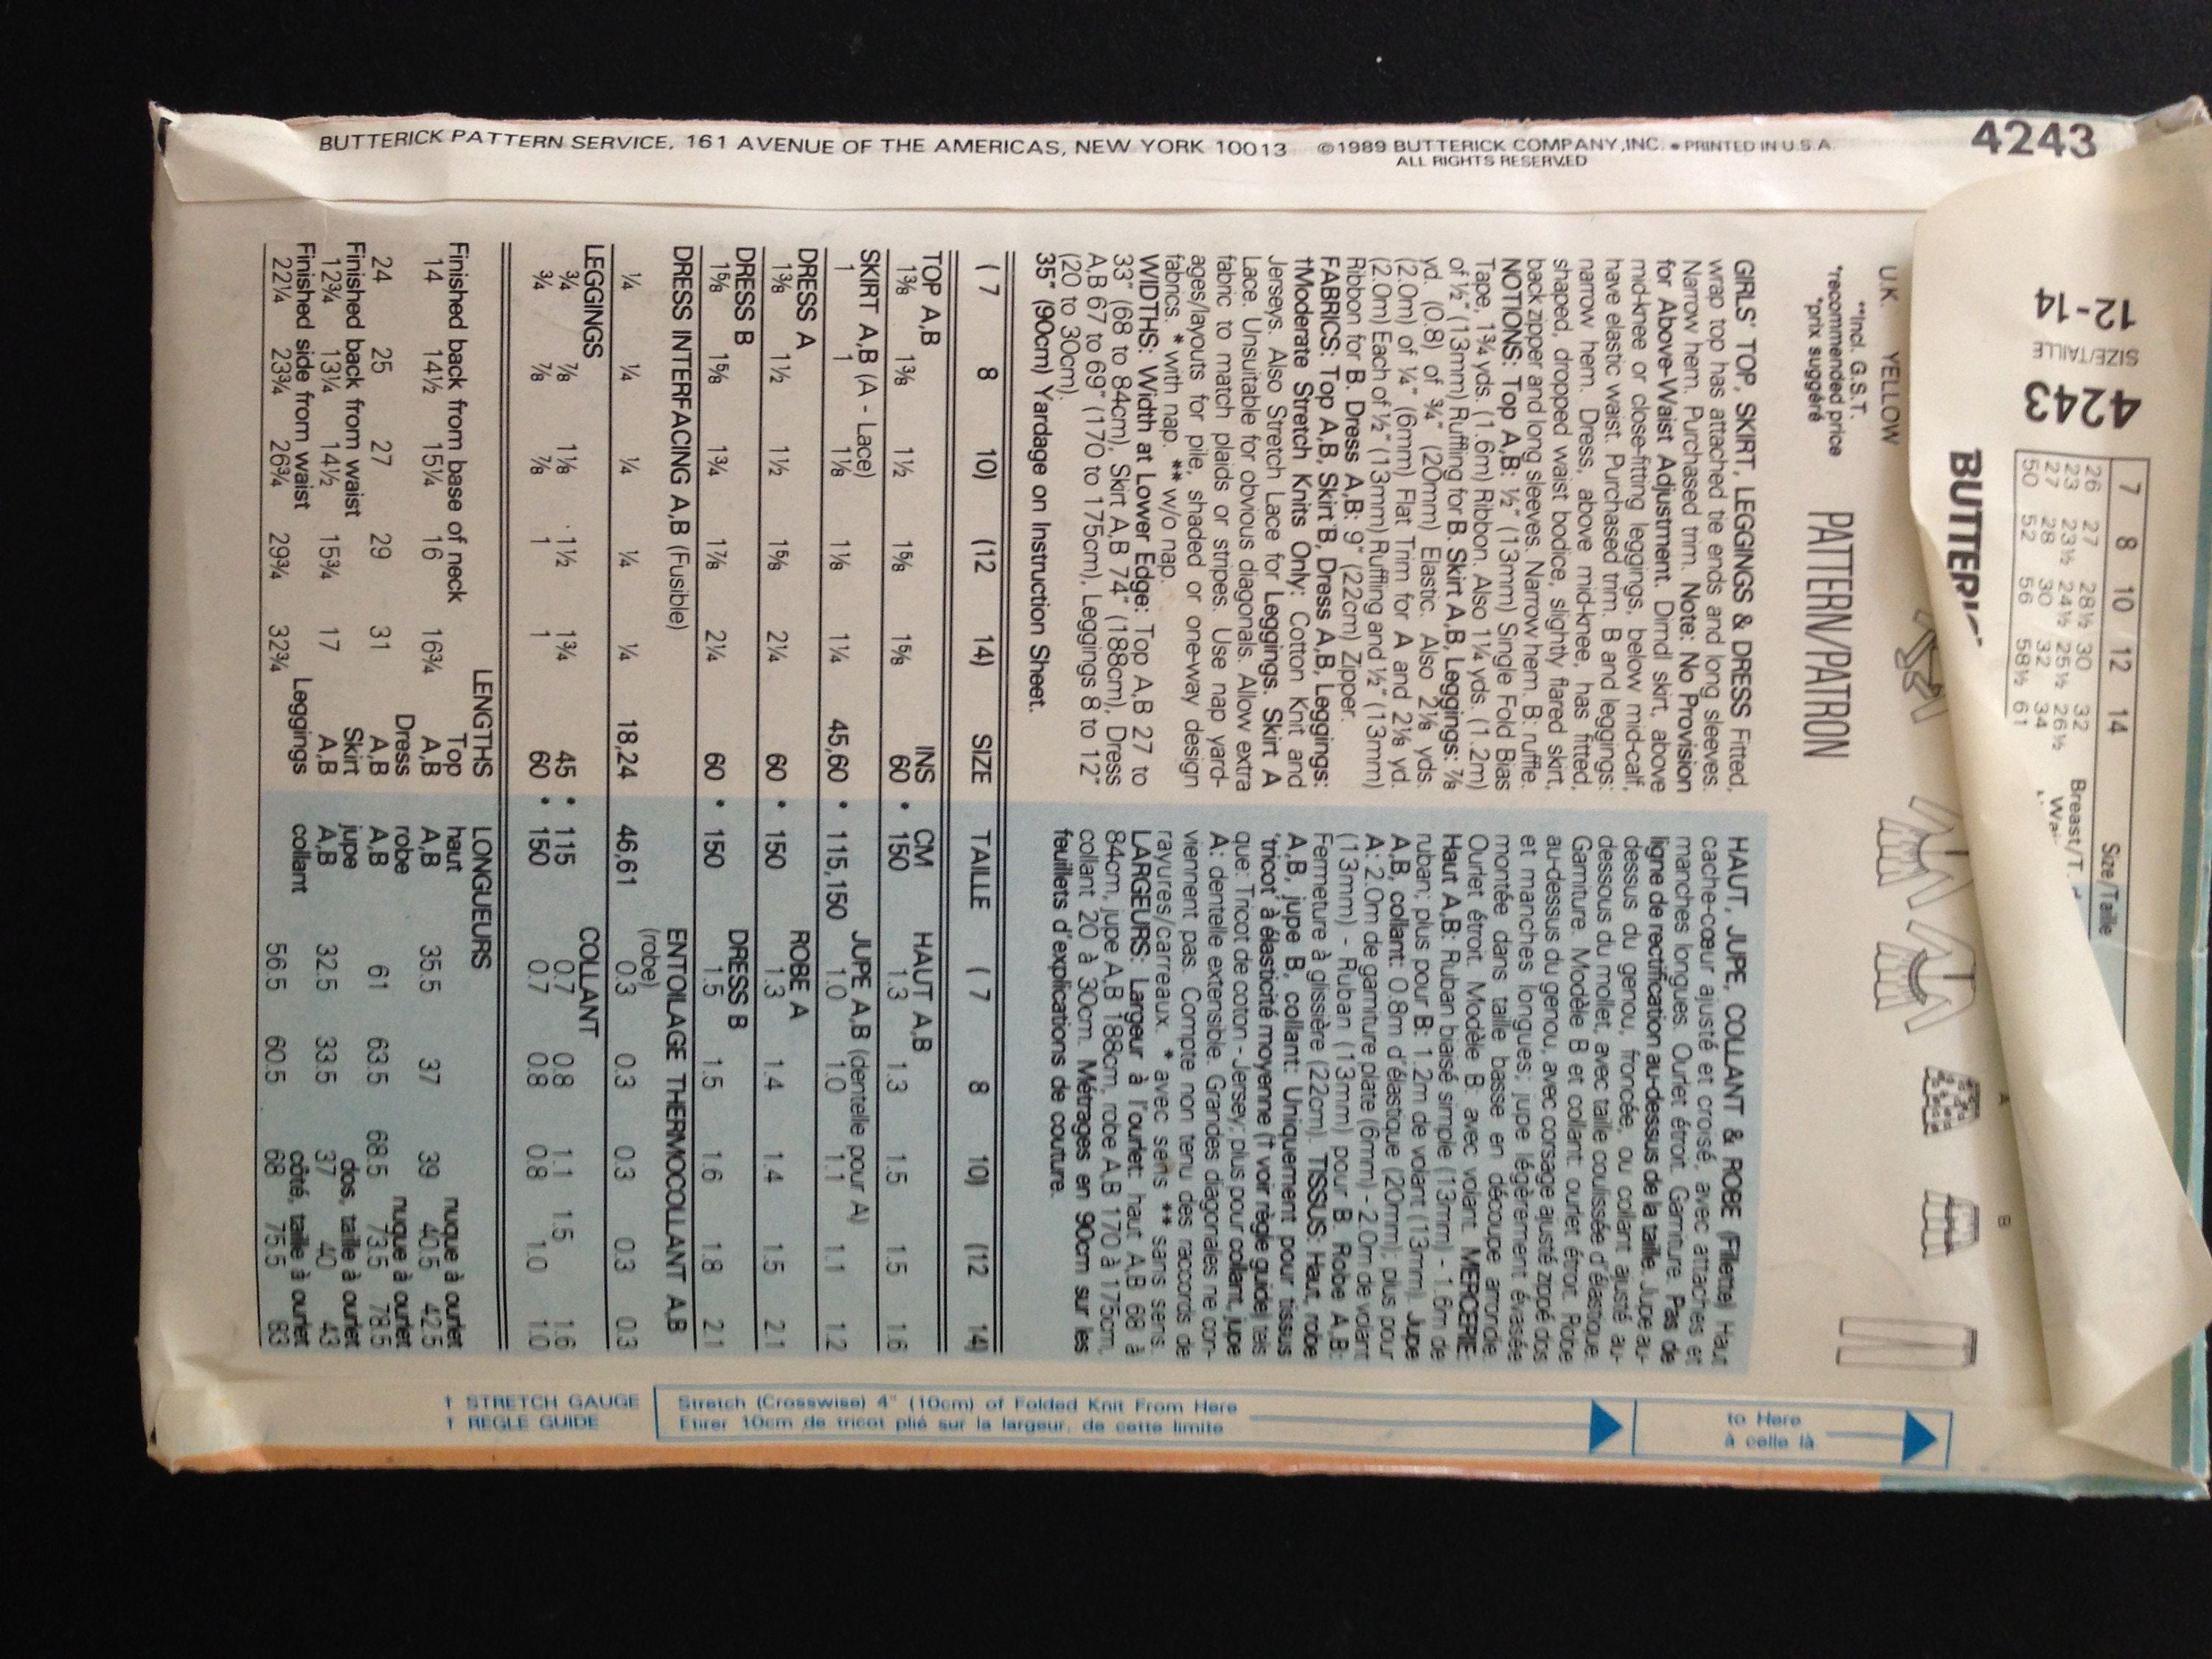 BUTTERICK PATTERN SERVICE, 161 AVENUE OF THE AMERICAS, NEW YORK 10013 ©1989 BUTTERICK COMPANY, INC. • PRINTED IN U.S.A.
ALL RIGHTS RESERVED
4243
4243
SIZE/TAILLE
12-14
7 8 10 12 14 Size/Taille
26 27 28½ 30 32 Breast/T.
23 23½ 24½ 25½ 26½
27 28 30 32 34
50 52 56 58½ 61
BUTTERI
A B
U.K. YELLOW
PATTERN/PATRON
**Incl. G.S.T.
*recommended price
*prix suggéré
GIRLS' TOP, SKIRT, LEGGINGS & DRESS Fitted,
wrap top has attached tie ends and long sleeves.
Narrow hem. Purchased trim. Note: No Provision
for Above-Waist Adjustment. Dirndl skirt, above
mid-knee or close-fitting leggings, below mid-calf,
have elastic waist. Purchased trim. B and leggings:
narrow hem. Dress, above mid-knee, has fitted,
shaped, dropped waist bodice, slightly flared skirt,
back zipper and long sleeves. Narrow hem. B: ruffle.
NOTIONS: Top A,B: ½" (13mm) Single Fold Bias
Tape, 1¾ yds. (1.6m) Ribbon. Also 1¼ yds. (1.2m)
of ½" (13mm) Ruffling for B. Skirt A,B, Leggings: ⅞
yd. (0.8) of ¾" (20mm) Elastic. Also 2⅛ yds.
(2.0m) of ¼" (6mm) Flat Trim for A and 2⅛ yd.
(2.0m) Each of ½" (13mm) Ruffling and ½" (13mm)
Ribbon for B. Dress A,B: 9" (22cm) Zipper.
FABRICS: Top A,B, Skirt B, Dress A,B, Leggings:
†Moderate Stretch Knits Only: Cotton Knit and
Jerseys. Also Stretch Lace for Leggings. Skirt A
Lace. Unsuitable for obvious diagonals. Allow extra
fabric to match plaids or stripes. Use nap yard-
ages/layouts for pile, shaded or one-way design
fabrics. * with nap. ** w/o nap.
WIDTHS: Width at Lower Edge: Top A,B 27 to
33" (68 to 84cm), Skirt A,B 74" (188cm), Dress
A,B 67 to 69" (170 to 175cm), Leggings 8 to 12"
(20 to 30cm).
35" (90cm) Yardage on Instruction Sheet.
HAUT, JUPE, COLLANT & ROBE (Fillette) Haut
cache-cœur ajusté et croisé, avec attaches et
manches longues. Ourlet étroit. Garniture. Pas de
ligne de rectification au-dessus de la taille. Jupe au-
dessus du genou, froncée, ou collant ajusté au-
dessous du mollet, avec taille coulissée d'élastique.
Garniture. Modèle B et collant: ourlet étroit. Robe
au-dessus du genou, avec corsage ajusté zippé dos
et manches longues; jupe légèrement évasée
montée dans taille basse en découpe arrondie.
Ourlet étroit. Modèle B: avec volant. MERCERIE:
Haut A,B: Ruban biaisé simple (13mm) - 1.6m de
ruban; plus pour B: 1.2m de volant (13mm). Jupe
A,B, collant: 0.8m d'élastique (20mm); plus pour
A: 2.0m de garniture plate (6mm) - 2.0m de volant
(13mm) - Ruban (13mm) pour B. Robe A,B:
Fermeture à glissière (22cm). TISSUS: Haut, robe
A,B, jupe B, collant: Uniquement pour tissus
'tricot' à élasticité moyenne († voir règle guide) tels
que: Tricot de coton - Jersey; plus pour collant, jupe
A: dentelle extensible. Grandes diagonales ne con-
viennent pas. Compte non tenu des raccords de
rayures/carreaux. * avec sens ** sans sens.
LARGEURS: Largeur à l'ourlet: haut A,B 68 à
84cm, jupe A,B 188cm, robe A,B 170 à 175cm,
collant 20 à 30cm. Métrages en 90cm sur les
feuillets d'explications de couture.
( 7 8 10) (12 14) SIZE TAILLE ( 7 8 10) (12 14)
TOP A,B INS CM HAUT A,B
1⅜ 1⅜ 1½ 1⅝ 1⅝ 60 * 150 1.3 1.3 1.5 1.5 1.6
SKIRT A,B (A - Lace) JUPE A,B (dentelle pour A)
1 1 1⅛ 1⅛ 1¼ 45,60 * 115,150 1.0 1.0 1.1 1.1 1.2
DRESS A ROBE A
1⅜ 1½ 1½ 1⅝ 2¼ 60 * 150 1.3 1.4 1.4 1.5 2.1
DRESS B DRESS B
1⅝ 1⅝ 1¾ 1⅞ 2¼ 60 * 150 1.5 1.5 1.6 1.8 2.1
DRESS INTERFACING A,B (Fusible) ENTOILAGE THERMOCOLLANT A,B
(robe)
¼ ¼ ¼ ¼ ¼ 18,24 46,61 0.3 0.3 0.3 0.3 0.3
LEGGINGS COLLANT
¾ ⅞ 1⅛ 1½ 1¾ 45 * 115 0.7 0.8 1.1 1.5 1.6
¾ ⅞ ⅞ 1 1 60 * 150 0.7 0.8 0.8 1.0 1.0
LENGTHS LONGUEURS
Finished back from base of neck Top haut nuque à ourlet
14 14½ 15¼ 16 16¾ A,B A,B 35.5 37 39 40.5 42.5
Dress robe nuque à ourlet
24 25 27 29 31 A,B A,B 61 63.5 68.5 73.5 78.5
Finished back from waist Skirt jupe dos, taille à ourlet
12¾ 13¼ 14½ 15¾ 17 A,B A,B 32.5 33.5 37 40 43
Finished side from waist Leggings collant côté, taille à ourlet
22¼ 23¾ 26¾ 29¾ 32¾ 56.5 60.5 68 75.5 83
† STRETCH GAUGE
† REGLE GUIDE
Stretch (Crosswise) 4" (10cm) of Folded Knit From Here
Etirer 10cm de tricot plié sur la largeur, de cette limite
to Here
à celle là